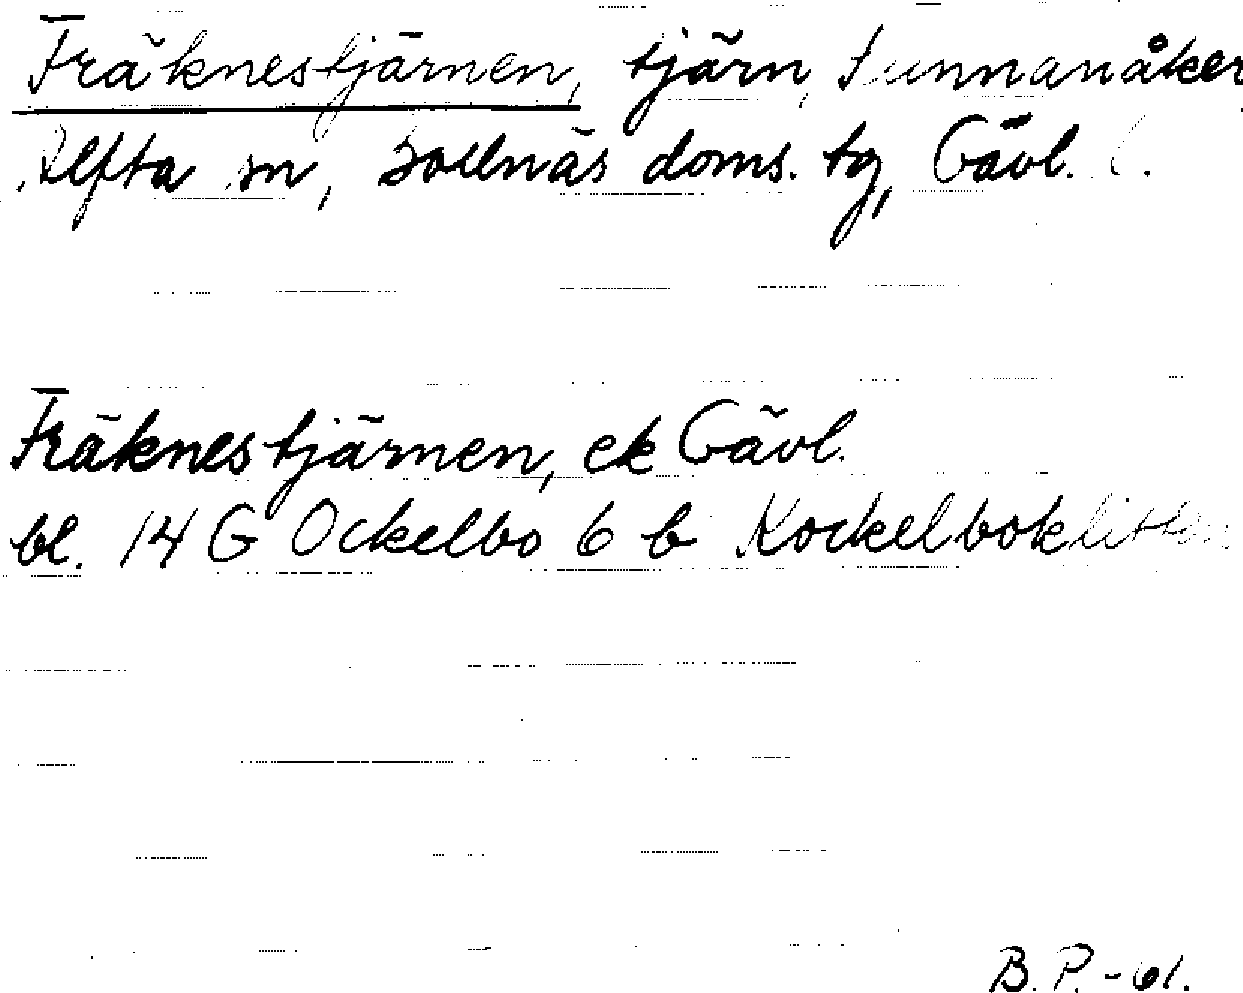 Fräknestjärnen, tjärn, Sunnanåker
Alfta sn, Bollnäs doms. tg, Gävl. l.
Fräknestjärnen, ek Gävl.
bl. 14 G Ockelbo 6 b Kockelboklitten
B. P. - 61.